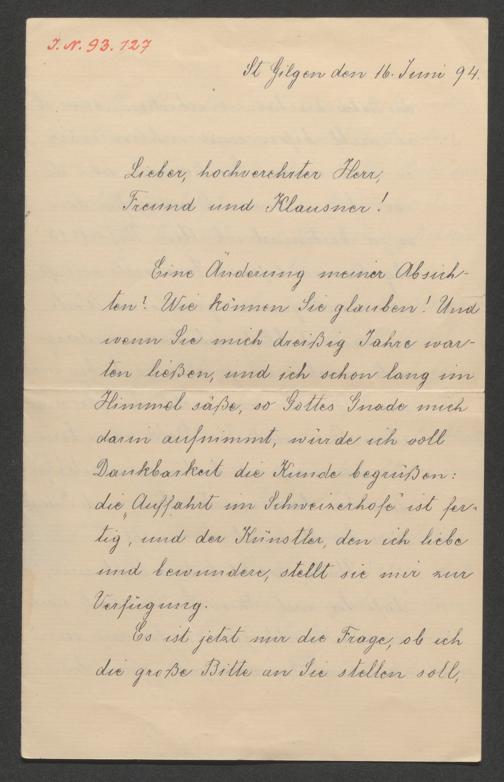 I. N. 93.127
St Gilgen den 16. Juni 94.
Lieber, hochverehrter Herr,
Freund und Klausner!
Eine Änderung meiner Absich-
ten? Wie können Sie glauben! Und
wenn Sie mich dreißig Jahre war-
ten ließen, und ich schon lang im
Himmel säße, so Gottes Gnade mich
darin aufnimmt, würde ich voll
Dankbarkeit die Kunde begrüßen:
die „Auffahrt im Schweizerhofe" ist fer-
tig, und der Künstler, den ich liebe
und bewundere, stellt sie mir zur
Verfügung.
Es ist jetzt nur die Frage, ob ich
die große Bitte an Sie stellen soll,